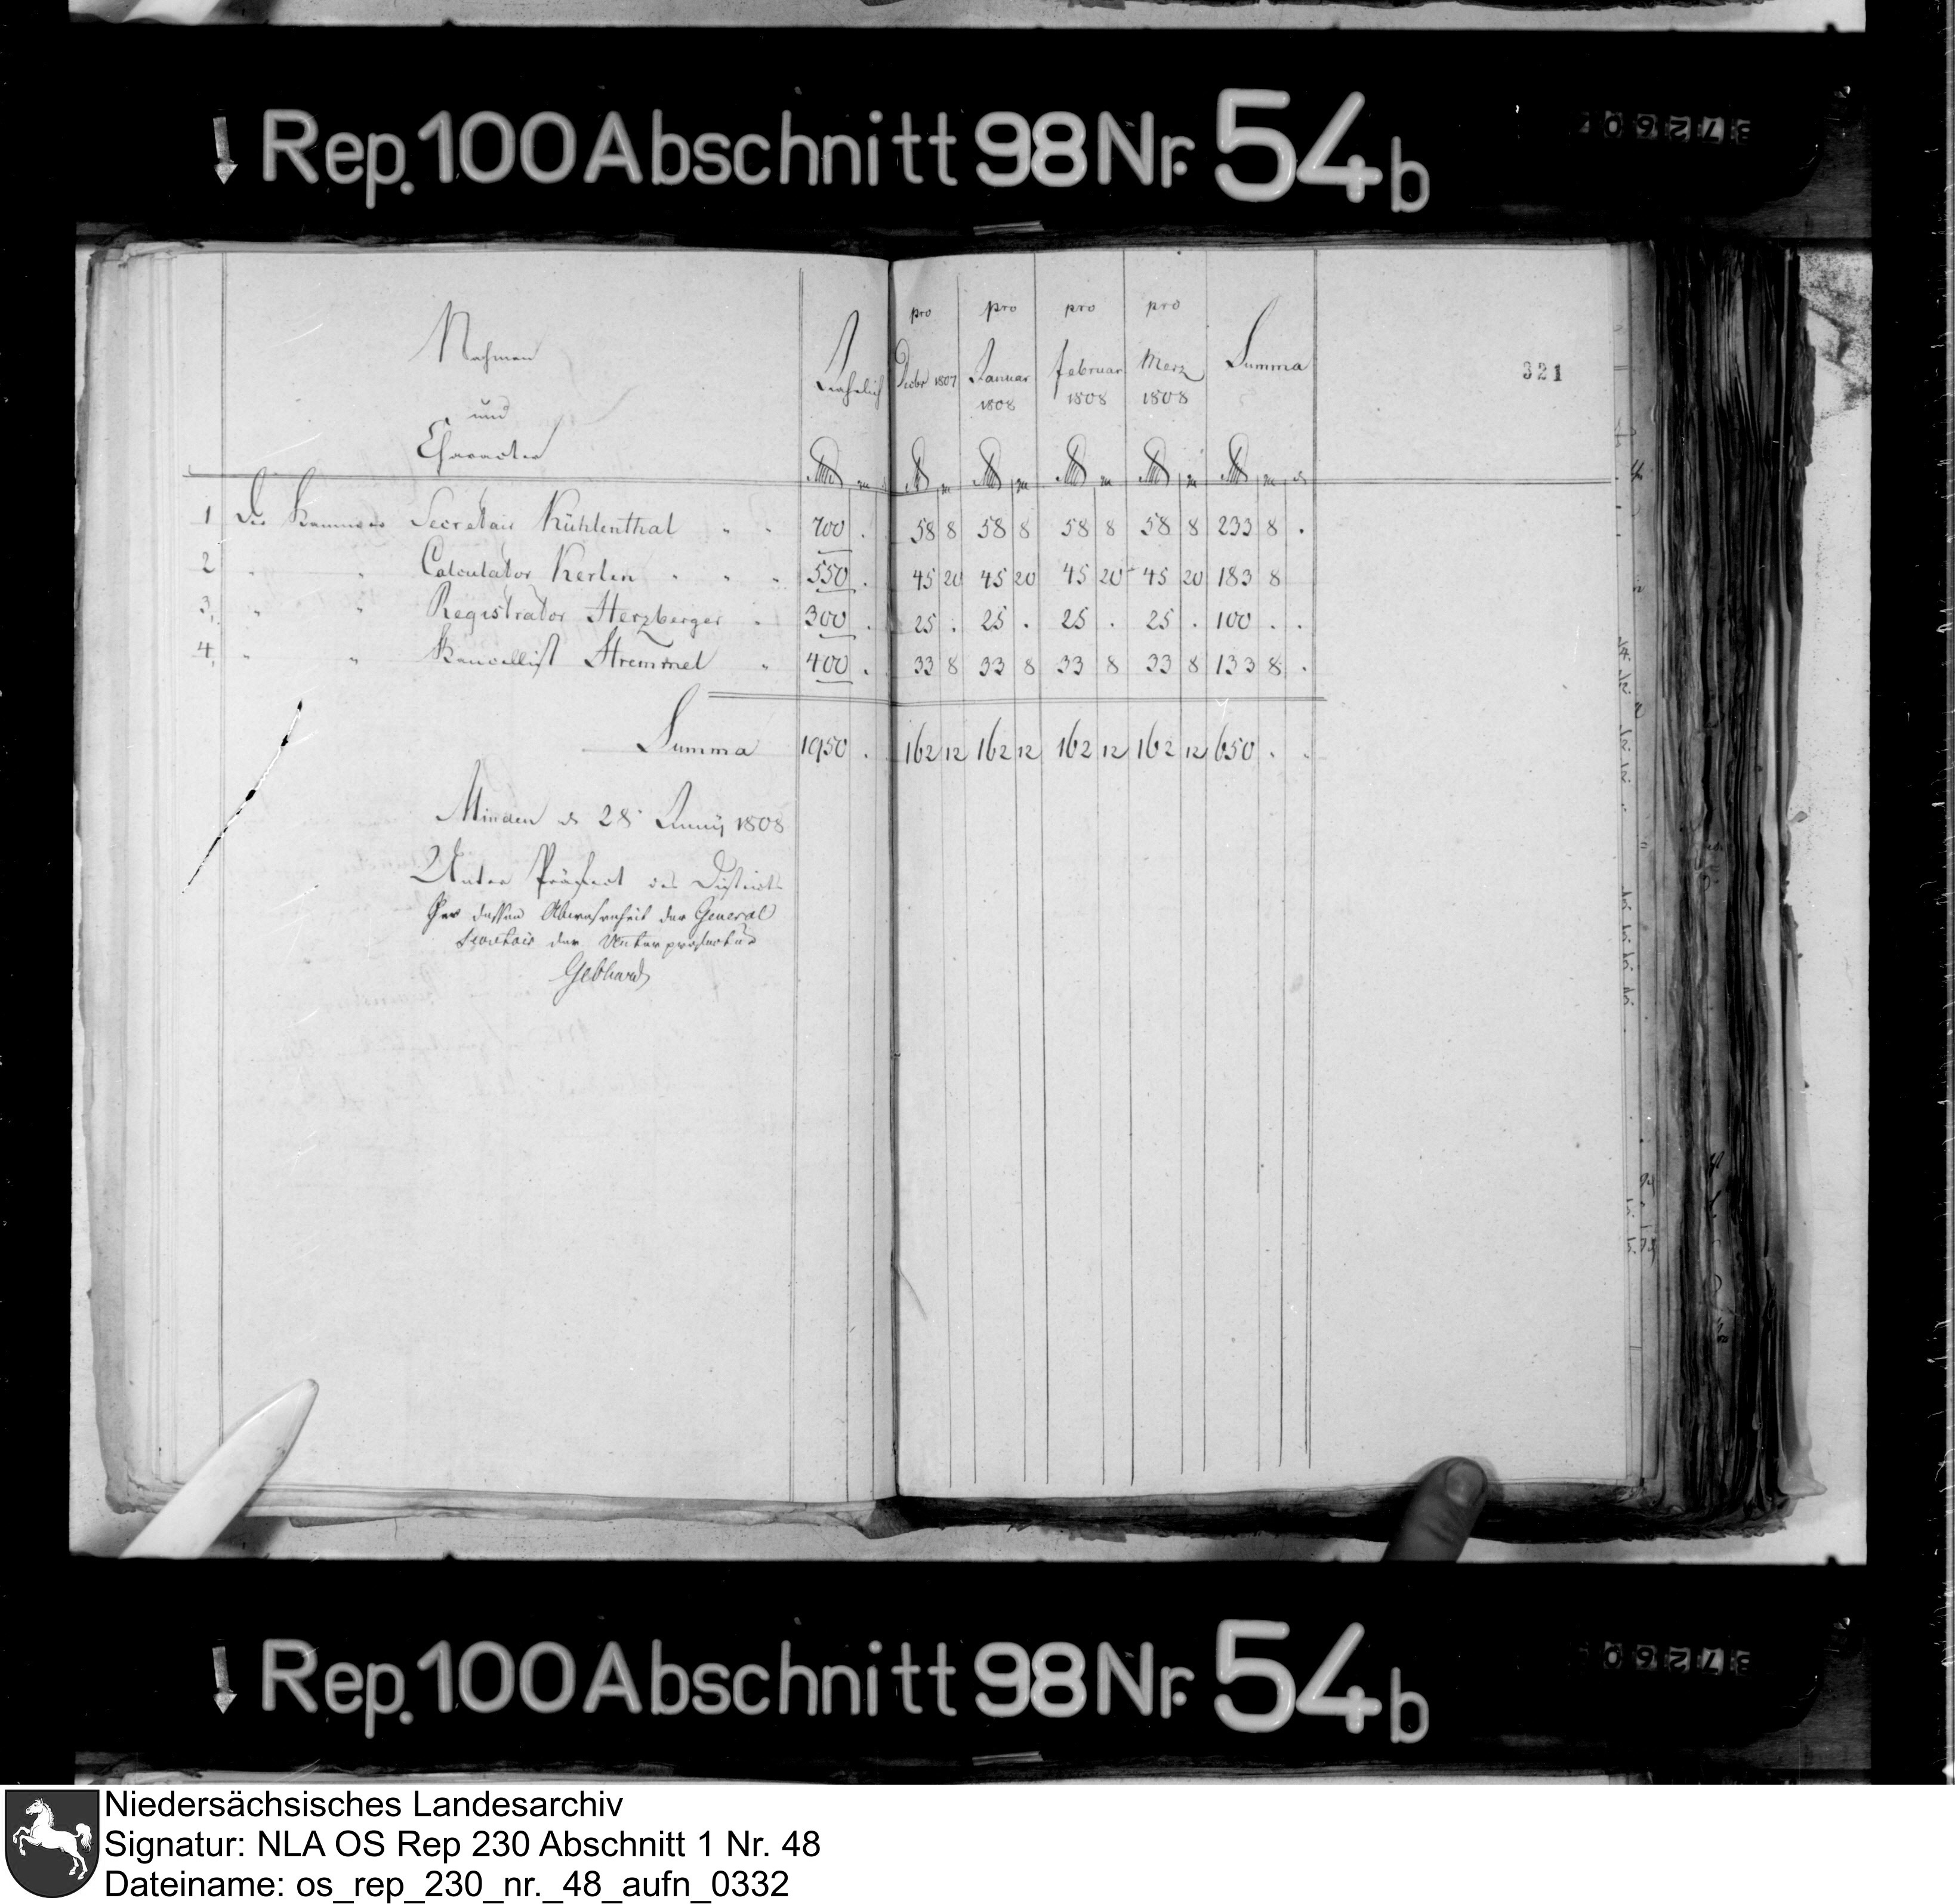 Rep. 100 Abschnitt 98 Nr. 54b
Nahmen
und
Character
Jaehrlich
pro Decbr 1807
pro Januar 1808
pro februar 1808
pro Merz 1808
Summa
321
1 Der Kammer Secretair Kühlenthal " " 700 . 58 8 58 8 58 8 58 8 233 8 .
2 " " Calculator Kerlen " " " 550 . 45 20 45 20 45 20 45 20 183 8
3, " " Registrator Herzberger " 300 . 25 . 25 . 25 . 25 . 100 . .
4, " " Kancellist Stremmel " 400 . 33 8 33 8 33 8 33 8 133 8 .
Summa 1950 . 162 12 162 12 162 12 162 12 650 . .
Minden d 28 Juny 1808
Unter Präfect des Districts
In dessen Abwesenheit der General
Secretair der Unterpräfectur
Gebhard
Rep. 100 Abschnitt 98 Nr. 54b
Niedersächsisches Landesarchiv
Signatur: NLA OS Rep 230 Abschnitt 1 Nr. 48
Dateiname: os_rep_230_nr._48_aufn_0332